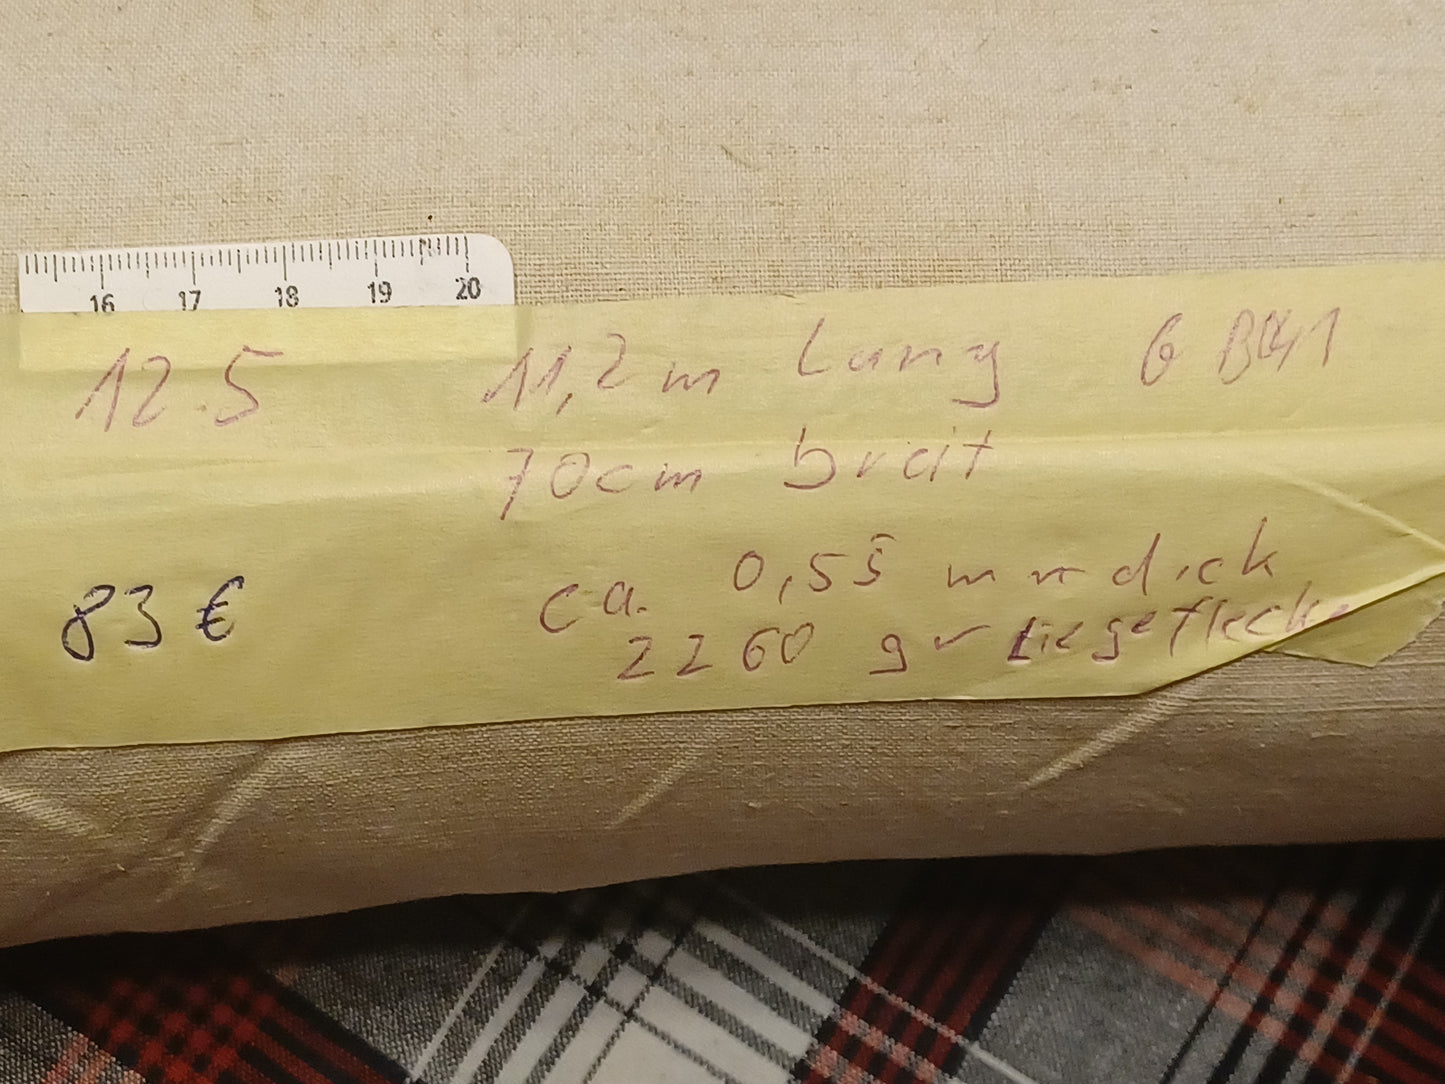 16 17 18 19 20
12.5 11,2 m Lang 6
70cm breit
83 € ca. 0,55 mm dick
2260 gr Liegeflecke